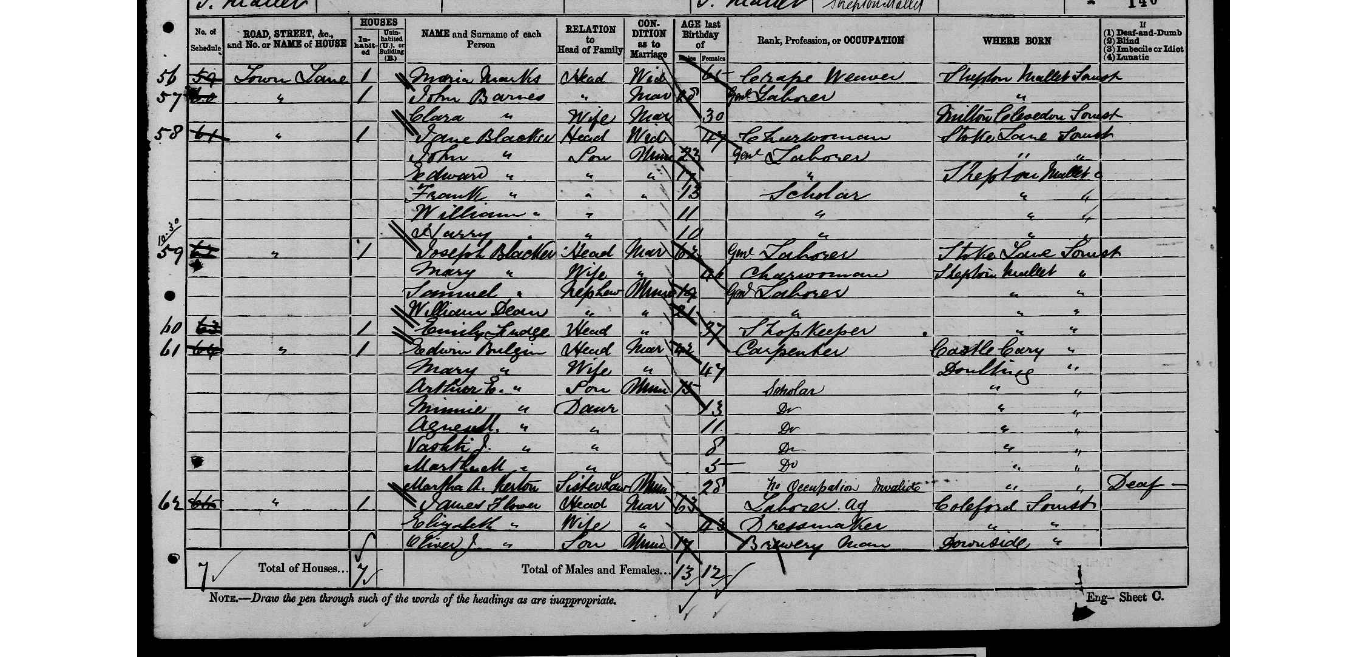 Shepton Mallet 140
No. of Schedule ROAD, STREET, &c., and No. or NAME of HOUSE HOUSES In-habit-ed Unin-habited (U.), or Building (B.) NAME and Surname of each Person RELATION to Head of Family CON-DITION as to Marriage AGE last Birthday of Males Females Rank, Profession, or OCCUPATION WHERE BORN If (1) Deaf-and-Dumb (2) Blind (3) Imbecile or Idiot (4) Lunatic
56 59 Town Lane 1 Maria Marks Head Wid 65 Crape Weaver Shepton Mallet Somst
57 1 John Barnes " Mar 28 Genl Laborer "
Clara " Wife Mar 30 Milton Clevedon Somst
58 61 " 1 Jane Blacker Head Wid 47 Charwoman Stoke Lane Somst
John " Son Unm 23 Genl Laborer " "
Edward " " " 17 " Shepton Mallet "
Frank " " " 13 Scholar " "
William " " 11 " " "
Harry " " 10 " " "
10.30
59 " 1 Joseph Blacker Head Mar Genl Laborer Stoke Lane Somst
Mary " Wife " Charwoman Shepton Mallet "
Samuel " Nephew Unm 19 Genl Laborer " "
William Dean " " 21 " " "
60 63 1 Emily Fudge Head " 37 Shopkeeper " "
61 64 " 1 Edwin Bulgin Head Mar Carpenter Castle Cary "
Mary " Wife " 47 Doulting "
Arthur E. " Son Unm 15 Scholar " "
Minnie " Daur 13 Do " "
Agnes M. " " 11 Do " "
Vashti J. " " 8 Do " "
Martha M " " 5 Do " "
Martha A. Kerton Sister Law Unm 28 No Occupation Invalid " " Deaf
62 65 " 1 James Flower Head Mar 63 Laborer Ag Coleford Somst
Elizabeth " Wife " 43 Dressmaker " "
Oliver J. " Son Unm 17 Brewery Man Downside "
7 Total of Houses... 7 Total of Males and Females... 13 12
NOTE.—Draw the pen through such of the words of the headings as are inappropriate.
Eng— Sheet C.